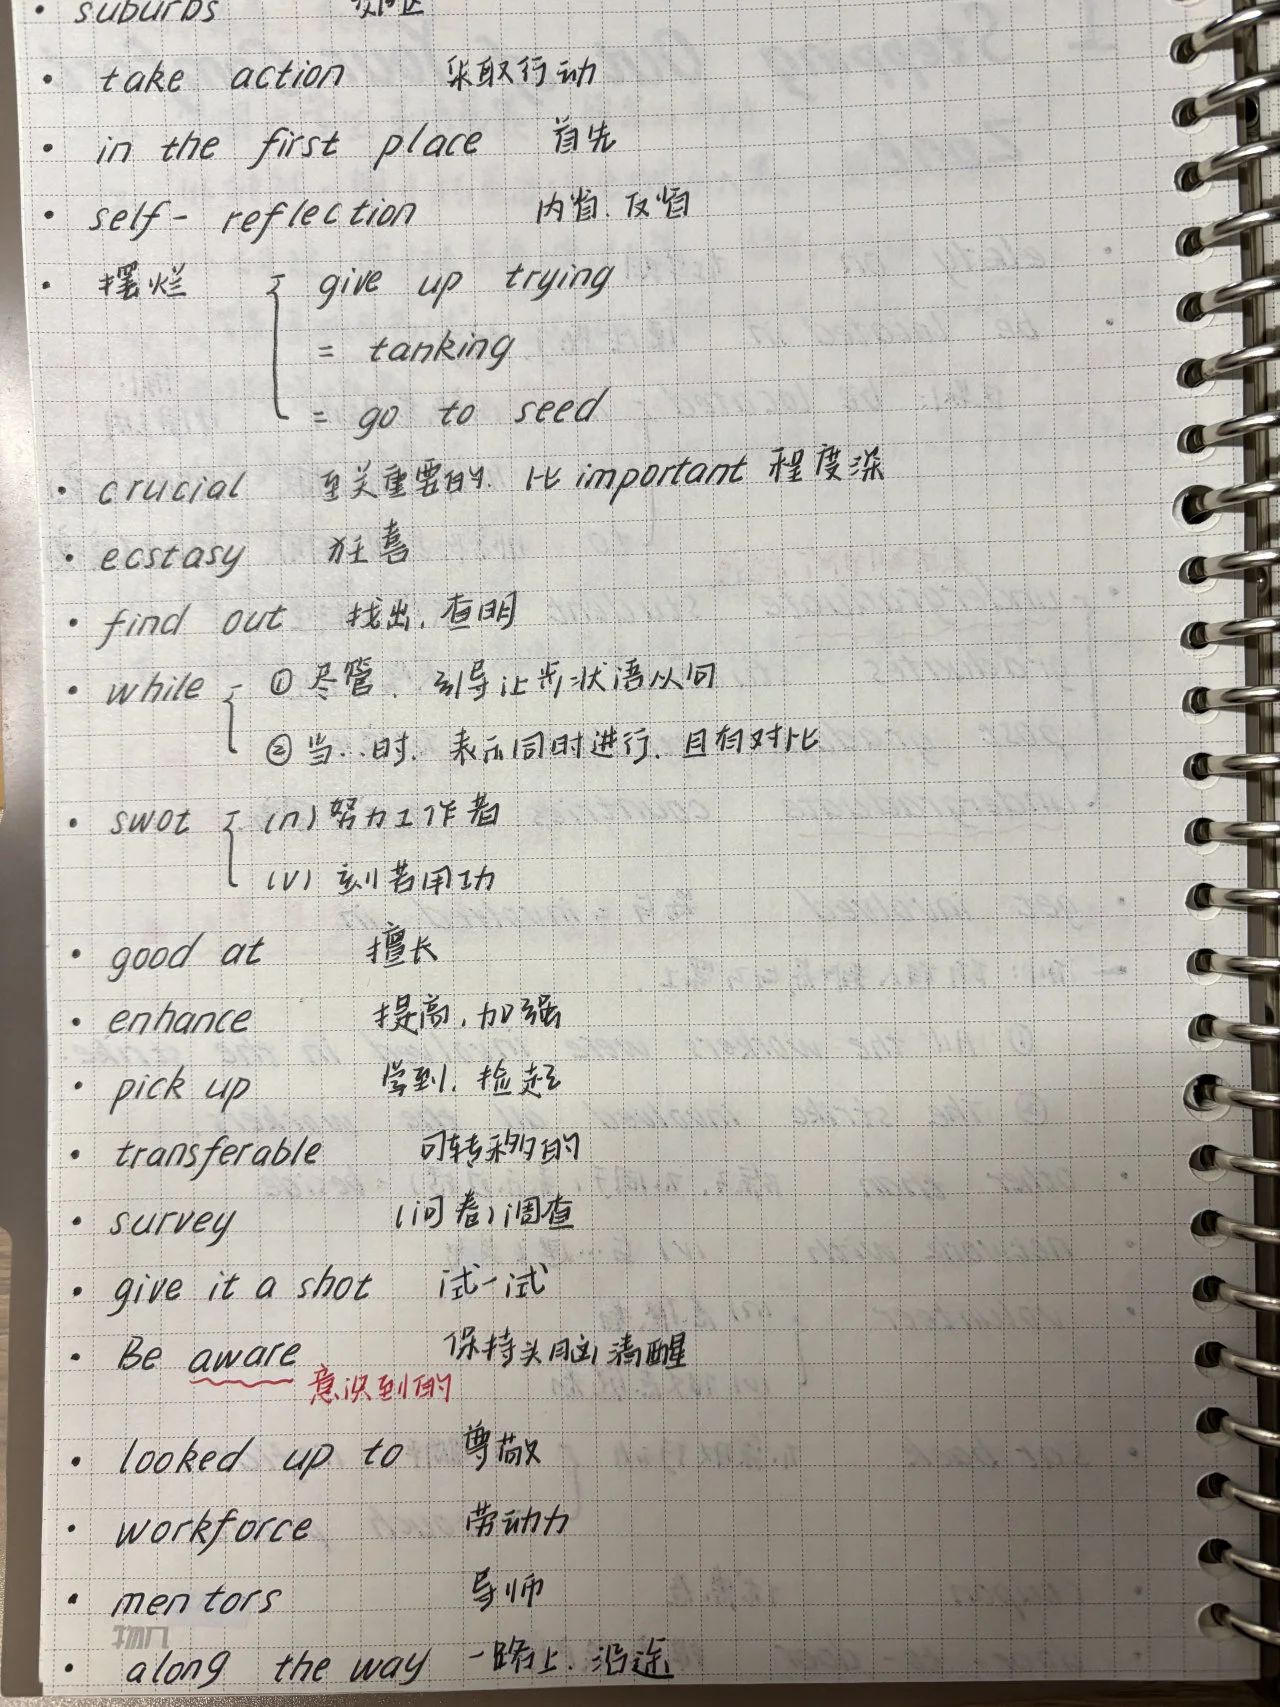 • suburbs
• take action 采取行动
• in the first place 首先
• self-reflection 内省. 反省
• 摆烂 { give up trying
= tanking
= go to seed
• crucial 至关重要的. 比 important 程度深
• ecstasy 狂喜
• find out 找出. 查明
• while { ① 尽管. 引导让步状语从句
② 当...时. 表示同时进行. 且有对比
• swot { (n) 努力工作者
(v) 刻苦用功
• good at 擅长
• enhance 提高. 加强
• pick up 学到. 捡起
• transferable 可转移的
• survey (问卷)调查
• give it a shot 试一试
• Be aware 保持头脑清醒
意识到的
• looked up to 尊敬
• workforce 劳动力
• mentors 导师
• along the way 一路上. 沿途